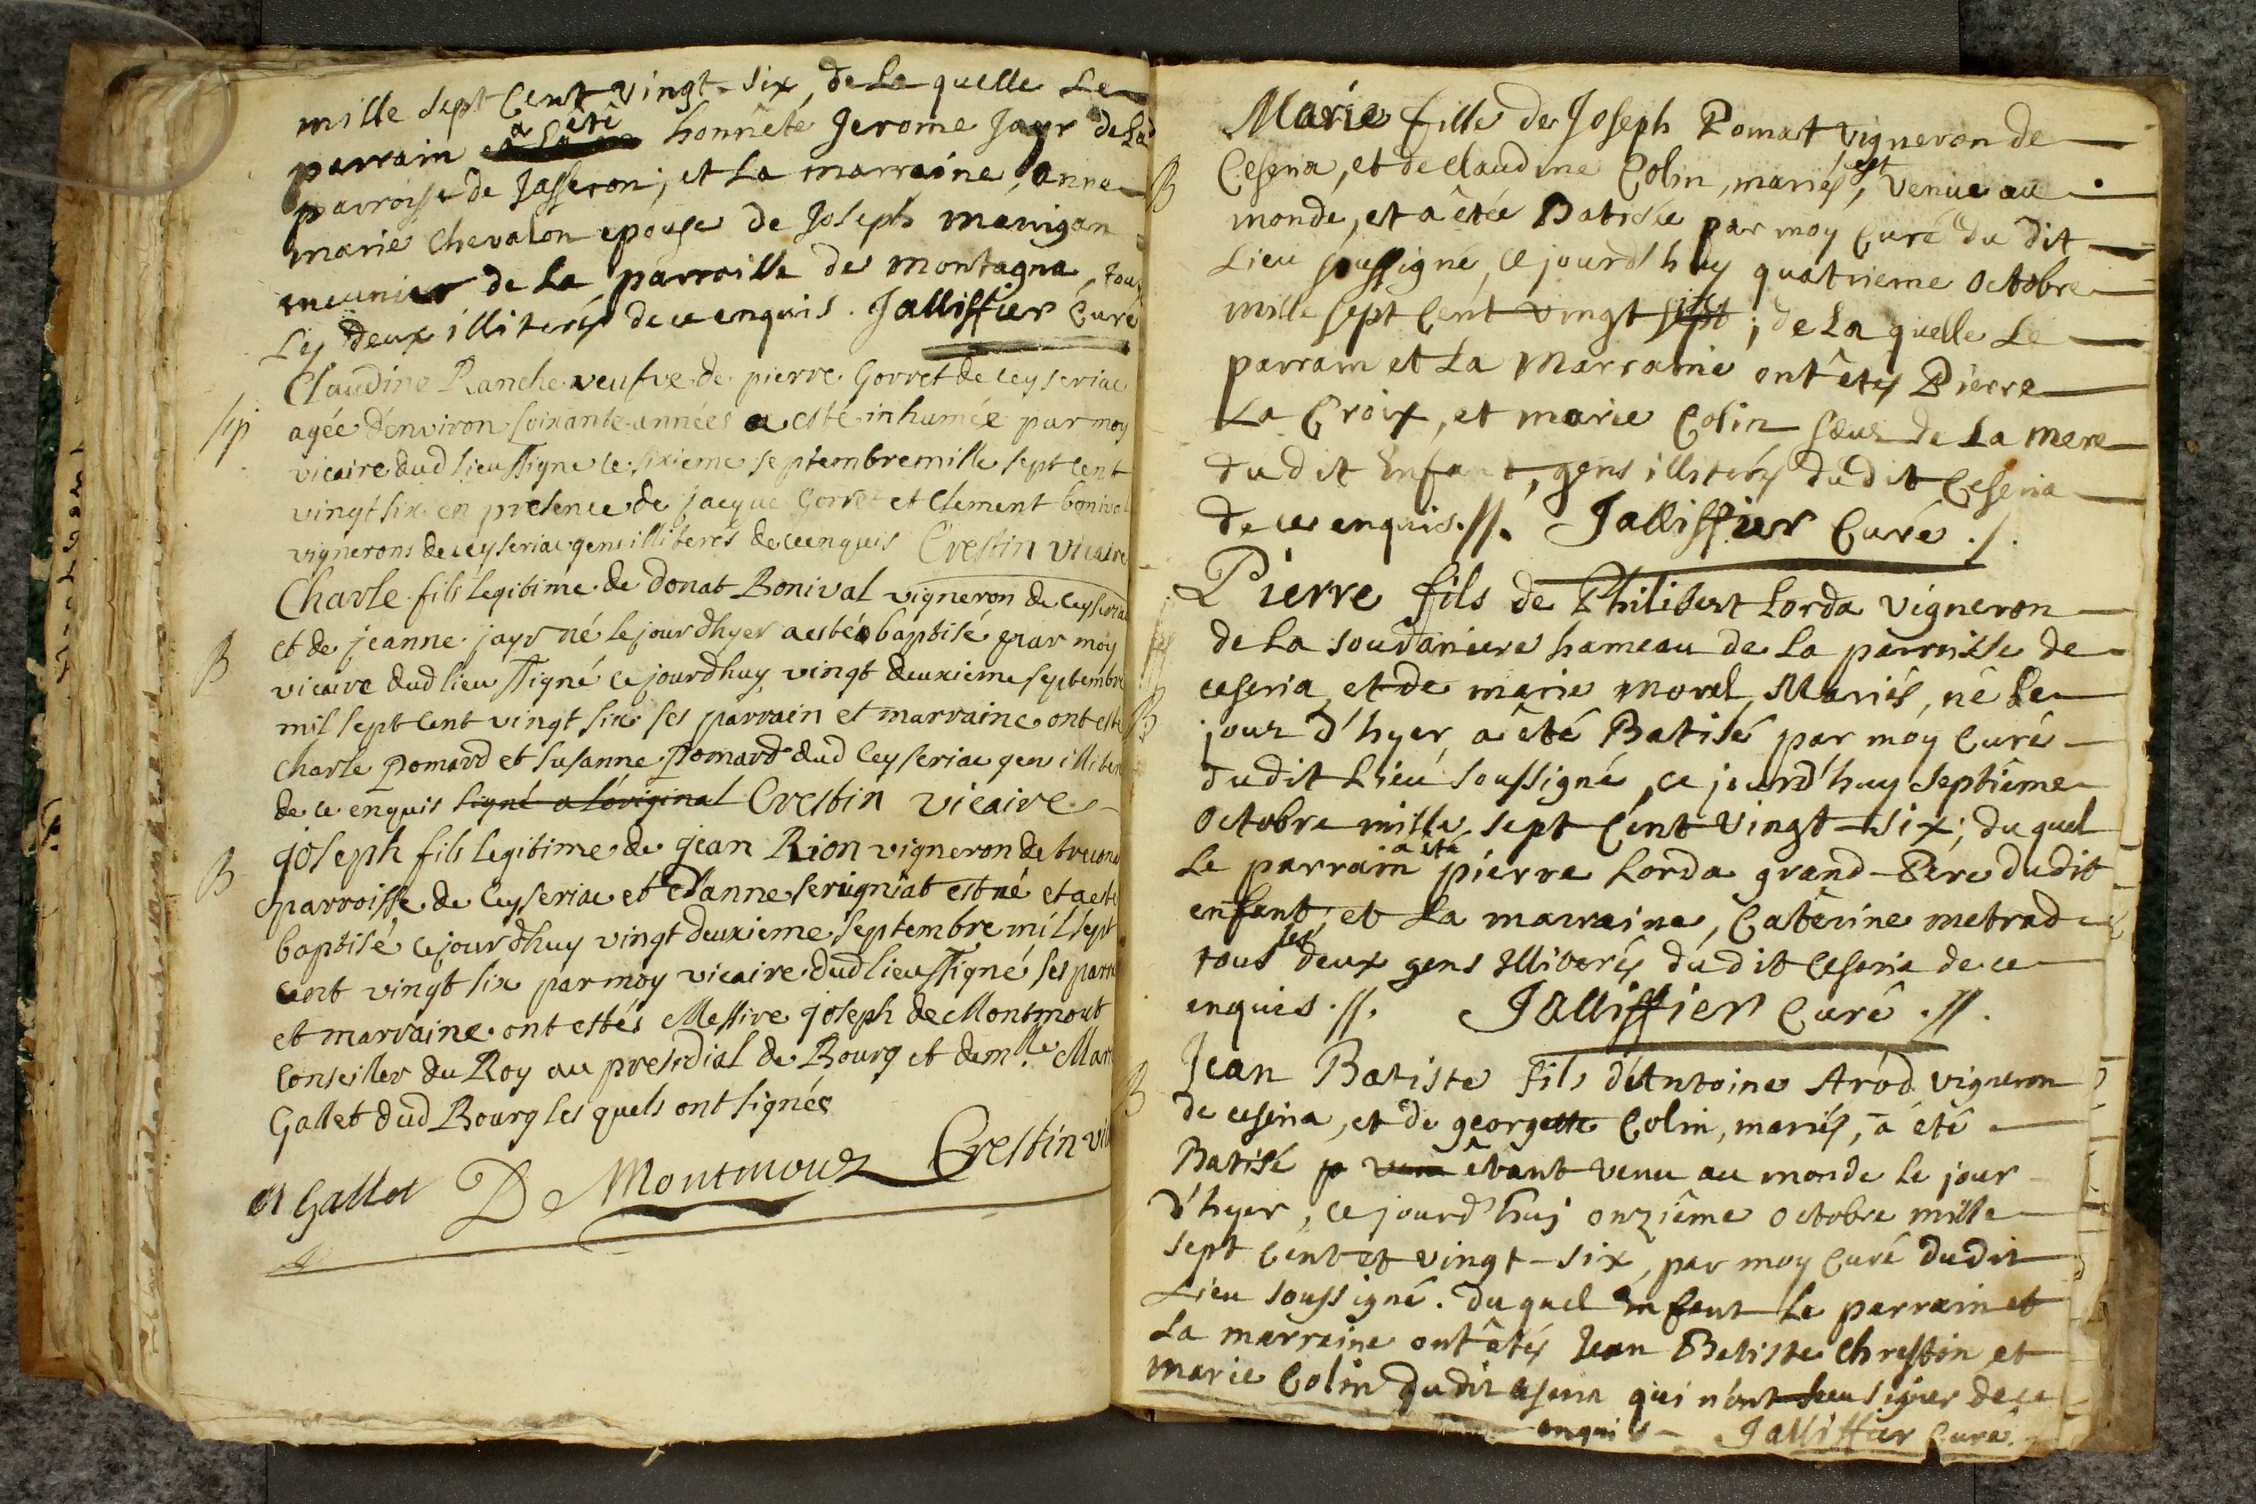 mille sept Cent vingt-six, de La quelle Le
parrain a êté honnête Jerome Jayr de La
parroisse de Jasseron; et La marraine, anne
marie Chevalon epouse de Joseph manigan
meunier de La parroisse de montagna, tous
Les deux illiterés de ce enquis. Jalliffier Curé
Claudine Ranche veufve de pierre Gorret de ceyseriac
sep
agée denviron soixante années a esté inhumée par moy
vicaire dud lieu ssigné le sixieme septembre mille sept cent
vingt six en presence de jacque Gorret et Clement bonival
vignerons de ceyseriac gens illiterés de ce enquis Crestin vicaire
Charle fils legitime de donat Bonival vigneron de ceyseria
B
et de jeanne jayr né le jour dhyer a esté baptisé par moy
vicaire dud lieu ssigné ce jourdhuy vingt deuxieme septembre
mil sept cent vingt six ses parrain et marraine ont esté
charle pomard et susanne pomard dud ceyseriac gens illiter
de ce enquis signé a l'original Crestin vicaire
joseph fils legitime de jean Rion vigneron de
B
parroisse de ceyseriac et d'anne serugniat est né et a esté
baptisé ce jourdhuy vingt deuxieme septembre mil sept
cent vingt six par moy vicaire dud lieu ssigné ses parr
et marraine ont estés Messire joseph de Montmout
Conseiller du Roy au presidial de Bourg et demlle Mar
Gallet dud Bourg les quels ont signés
M Gallet De Montmouz Crestin vic
Marie fille de Joseph Pomat vigneron de
B
Ceseria, et de claudine Colin, mariés, est venue au
monde, et a êtée Batisée par moy Curé du dit
Lieu soussigné, ce jourd'huy quatrieme Octobre
mille sept Cent vingt six; de La quelle Le
parrain et La Marraine ont êtés Pierre
La Croix, et marie Colin sœur de La mere
du dit Enfant, gens illiterés dudit Ceseria
de ce enquis.//. Jalliffier Curé ./.
Pierre fils de Philibert Lorda vigneron
de La soudaniere hameau de La parroisse de
ceseria, et de marie morel, Mariés, né Le
B
jour d'hyer, a êté Batisé par moy Curé
dudit Lieu soussigné, ce jourd'huy septiême
Octobre mille sept Cent vingt-six; du quel
Le parrain a été pierre Lorda grand-Pere dudit
enfant; et La marraine, Catèrine metrad
tous les deux gens illiterés dudit Ceseria de ce
enquis.//. Jalliffier Curé .//.
Jean Batiste fils d'Antoine Aród vigneron
B
de ceseria, et de georgette Colin, mariés, a été
Batisé êtant venu au monde le jour
d'hyer, ce jourd'huy onziême octobre mille
sept Cent et vingt-six, par moy Curé dudit
Lieu soussigné. du quel Enfent Le parrain et
La marraine ont êtés Jean Batiste Chrestin et
marie Colin dudit ceseria qui n'ont sceu signer de ce
enquis - Jalliffier Curé.